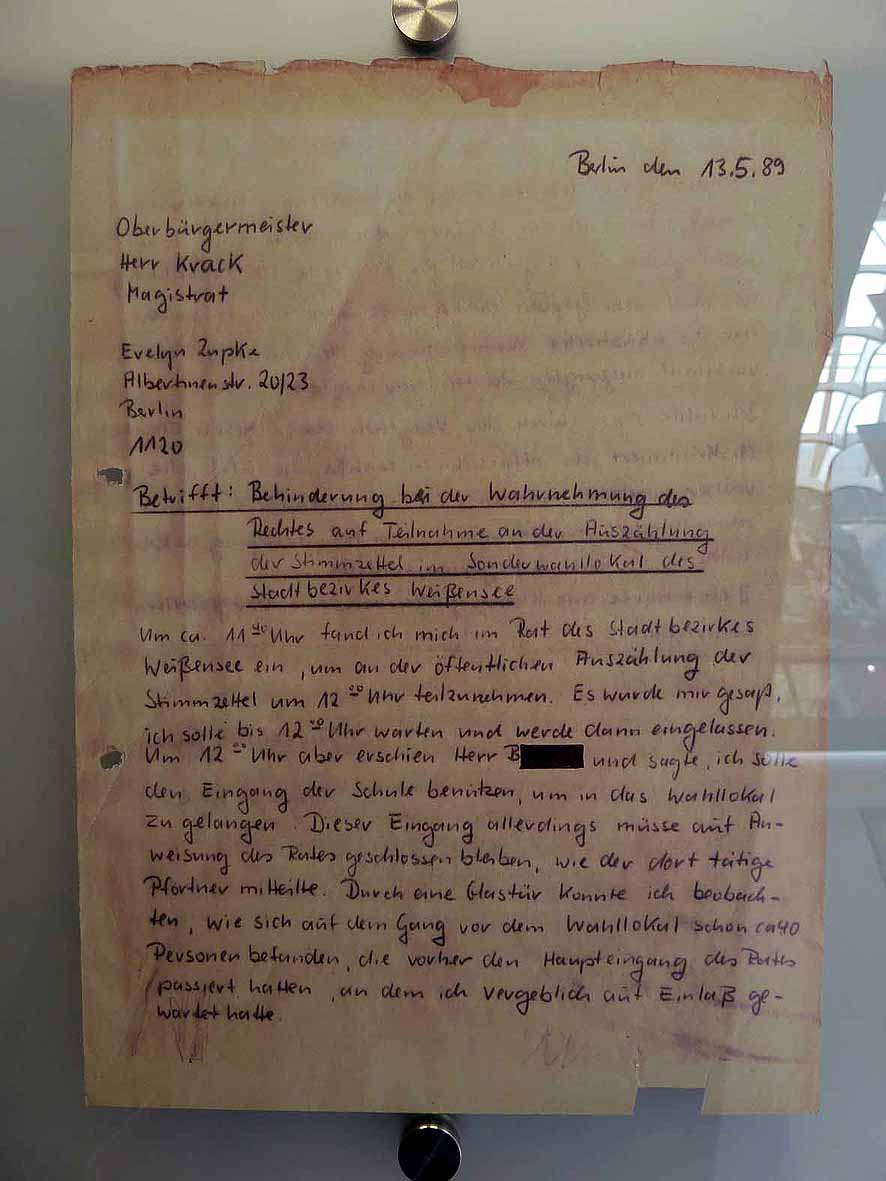 Berlin den 13.5.89
Oberbürgermeister
Herr Krack
Magistrat
Evelyn Zupke
Albertinenstr. 20/23
Berlin
1120
Betrifft: Behinderung bei der Wahrnehmung des
Rechtes auf Teilnahme an der Auszählung
der Stimmzettel im Sonderwahllokal des
Stadtbezirkes Weißensee
Um ca. 11 Uhr fand ich mich im Rat des Stadtbezirkes
Weißensee ein, um an der öffentlichen Auszählung der
Stimmzettel um 12 00 Uhr teilzunehmen. Es wurde mir gesagt,
ich solle bis 12 00 Uhr warten und werde dann eingelassen.
Um 12 00 Uhr aber erschien Herr B und sagte, ich solle
den Eingang der Schule benutzen, um in das Wahllokal
zu gelangen. Dieser Eingang allerdings müsse auf An-
weisung des Rates geschlossen bleiben, wie der dort tätige
Pförtner mitteilte. Durch eine Glastür konnte ich beobach-
ten, wie sich auf dem Gang vor dem Wahllokal schon ca 40
Personen befanden, die vorher den Haupteingang des Rates
passiert hatten, an dem ich vergeblich auf Einlaß ge-
wartet hatte.